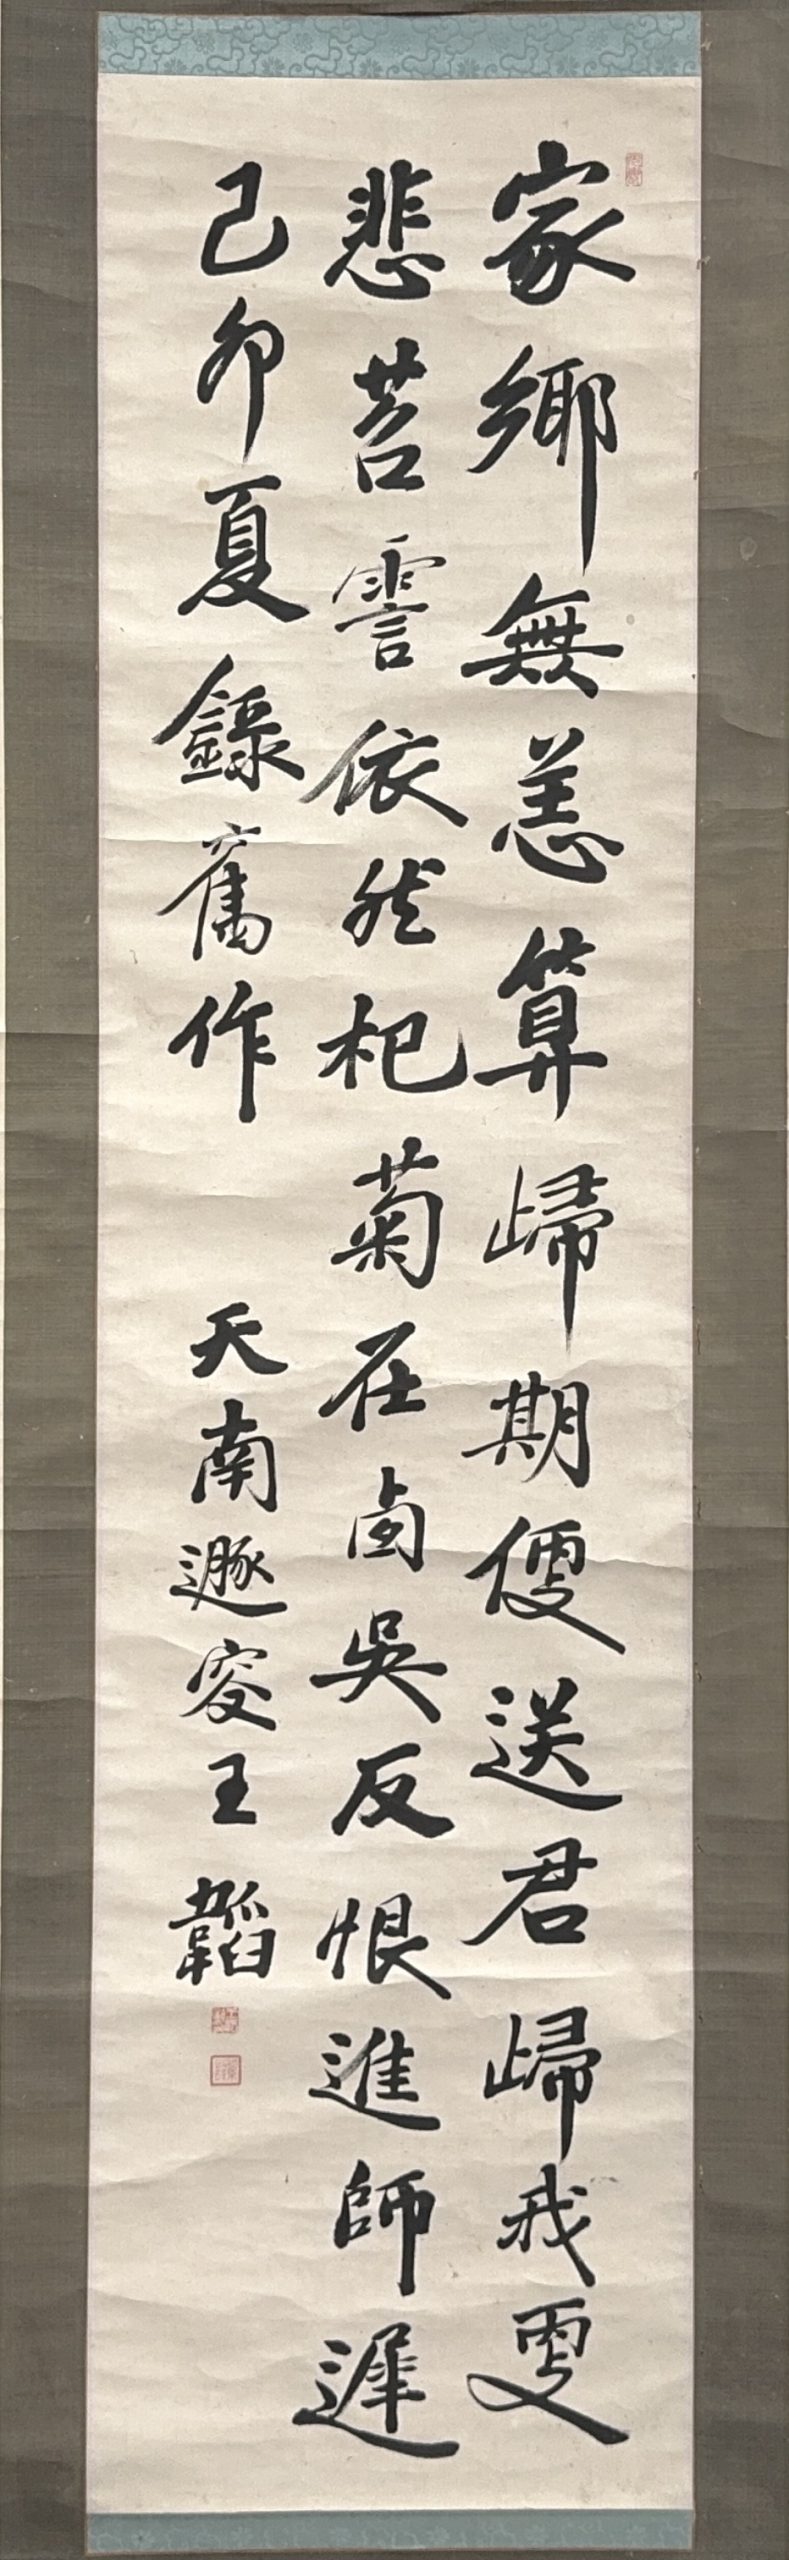 家鄉無恙算歸期便送君歸我更
悲苕霅依然杞菊在困吳反恨進師遲
己卯夏錄舊作 天南遯客王韜